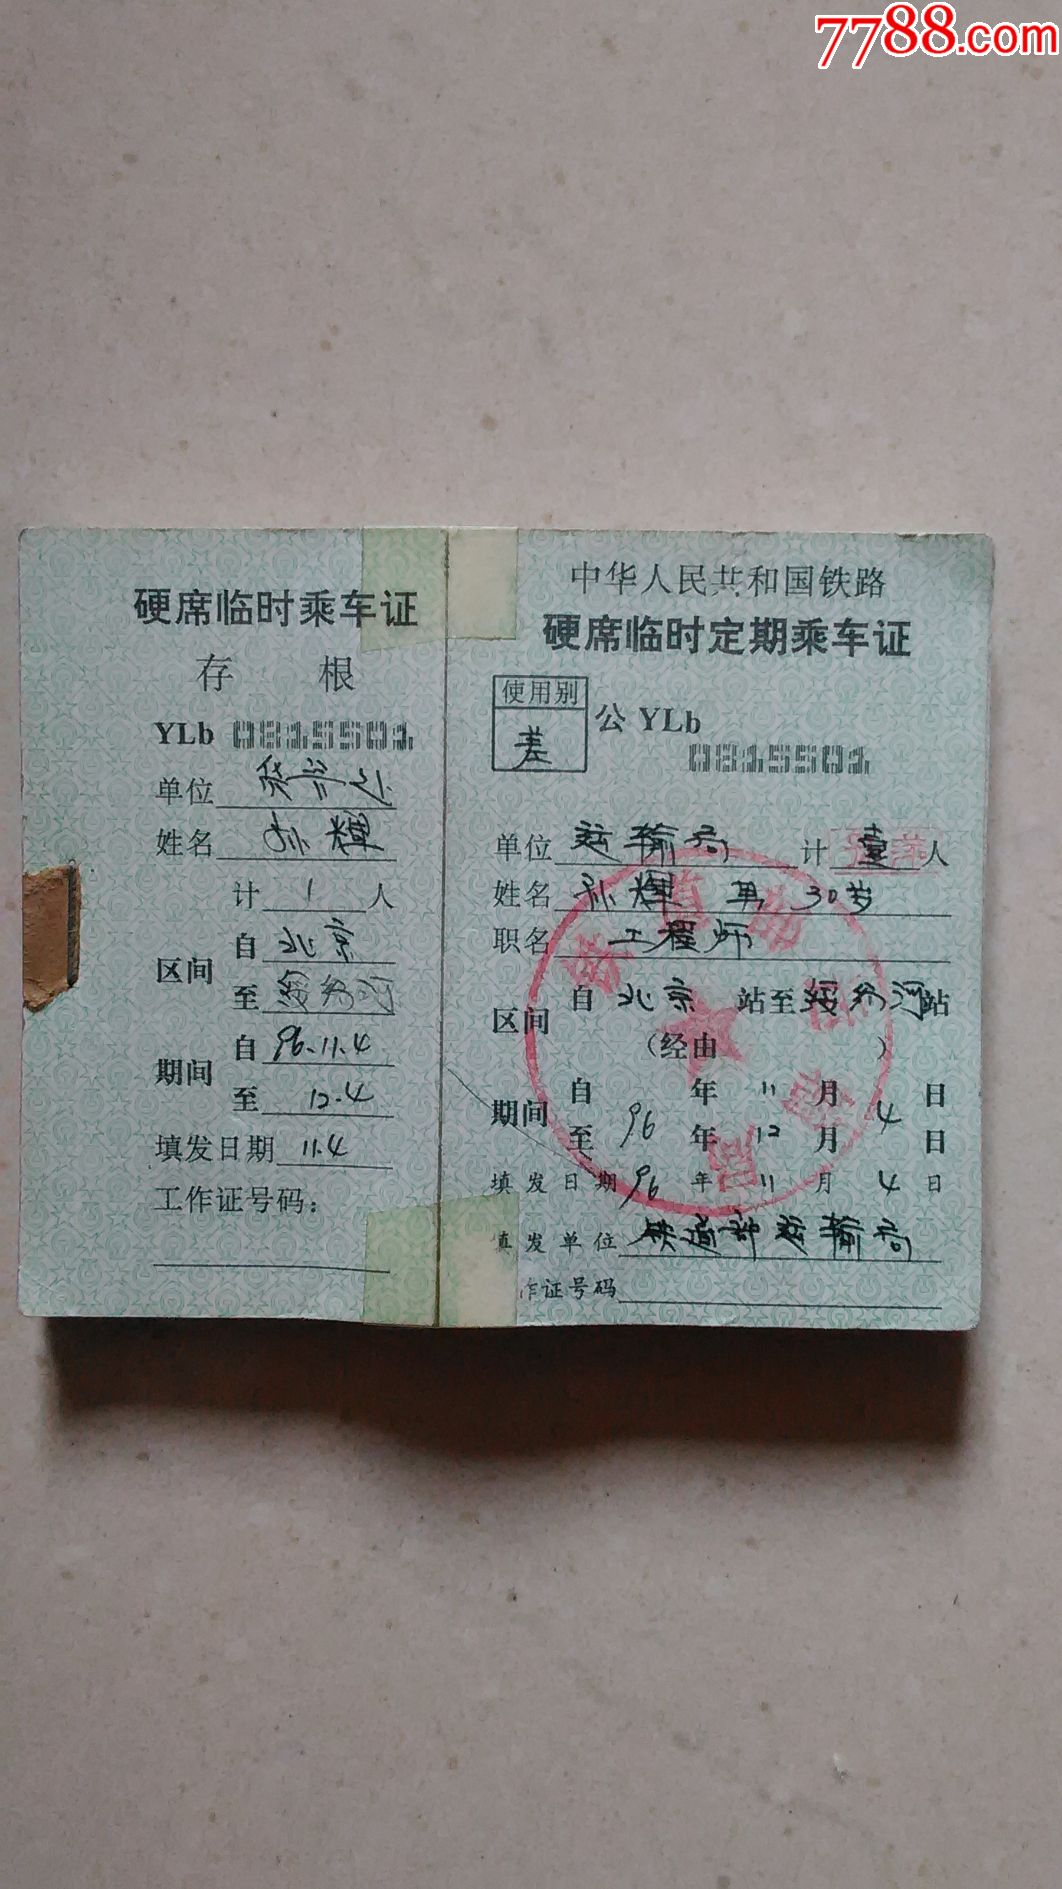 7788.com
硬席临时乘车证
存 根
YLb 0815501
单位
姓名 孙辉
计 1 人
区间
自 北京
至 绥芬河
期间
自 96.11.4
至 12.4
填发日期 11.4
工作证号码：
中华人民共和国铁路
硬席临时定期乘车证
使用别
差
公 YLb
0815501
单位 运输局 计 壹 人
姓名 孙辉 男 30岁
职名 工程师
区间 自 北京 站至 绥芬河 站
(经由 )
期间
自 年 11 月 日
至 96 年 12 月 4 日
填发日期 96 年 11 月 4 日
填发单位 铁道部运输局
作证号码